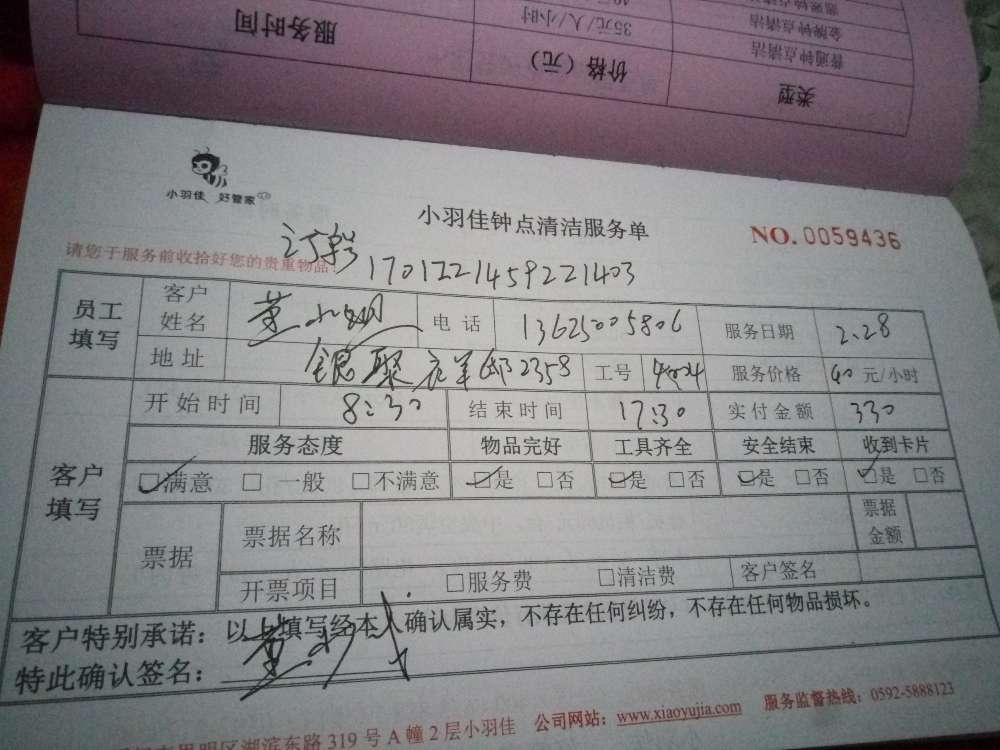 服务时间 价格（元） 类型
35元/人/小时 普通钟点清洁
金牌钟点清洁
小羽佳 好管家
小羽佳钟点清洁服务单
NO. 0059436
请您于服务前收拾好您的贵重物品！
1701221459221403
员工填写 客户姓名 董小 电话 13625005806 服务日期 2.28
地址 银聚 邸2358 工号 服务价格 40 元/小时
开始时间 8:30 结束时间 17:30 实付金额 330
客户填写 服务态度 物品完好 工具齐全 安全结束 收到卡片
☑满意 □一般 □不满意 ☑是 □否 ☑是 □否 ☑是 □否 ☑是 □否
票据 票据名称 票据金额
开票项目 □服务费 □清洁费 客户签名
客户特别承诺：以上填写经本人确认属实，不存在任何纠纷，不存在任何物品损坏。
特此确认签名：董小
思明区湖滨东路 319 号 A 幢 2 层小羽佳 公司网站：www.xiaoyujia.com 服务监督热线：0592-5888123